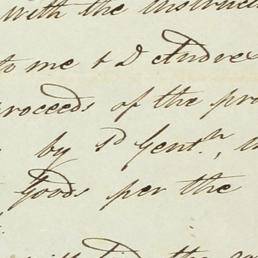 with the instruc
to me & D Andre
proceeds of the pro
by sd Gentn,
Goods per the
the